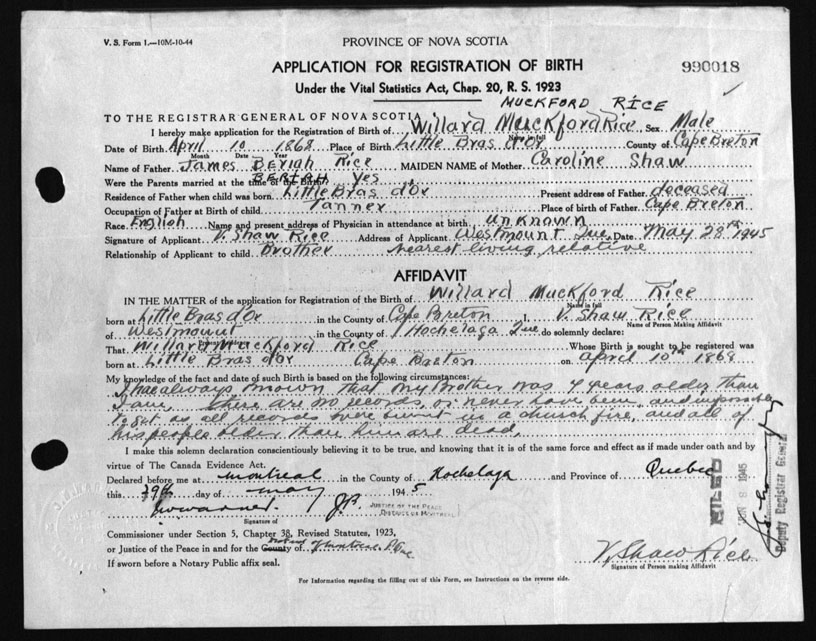 V. S. Form 1.—10M-10-44
PROVINCE OF NOVA SCOTIA
APPLICATION FOR REGISTRATION OF BIRTH
990018
Under the Vital Statistics Act, Chap. 20, R. S. 1923
MUCKFORD RICE
TO THE REGISTRAR GENERAL OF NOVA SCOTIA
I hereby make application for the Registration of Birth of Willard Muckford Rice Sex Male
Name in full
Date of Birth April 10 1868 Place of Birth Little Bras d'Or County of Cape Breton
Month Date Year
Name of Father James Beriah Rice MAIDEN NAME of Mother Caroline Shaw
BERIAH
Were the Parents married at the time of the Birth Yes
Residence of Father when child was born Little Bras d'Or Present address of Father deceased
Occupation of Father at Birth of child Tanner Place of birth of Father Cape Breton
Race English Name and present address of Physician in attendance at birth unknown
Signature of Applicant V. Shaw Rice Address of Applicant Westmount Que. Date May 28th 1945
Relationship of Applicant to child Brother nearest living relative
AFFIDAVIT
IN THE MATTER of the application for Registration of the Birth of Willard Muckford Rice
Name in full
born at Little Bras d'Or in the County of Cape Breton I, V. Shaw Rice
Name of Person Making Affidavit
of Westmount in the County of Hochelaga Que do solemnly declare:
That Willard Muckford Rice Whose Birth is sought to be registered was
born at Little Bras d'Or Cape Breton on april 10th 1868
My knowledge of the fact and date of such Birth is based on the following circumstances:
I have always known that my brother was 4 years older than
I am. There are no records or never have been, and impossible
to get as all records were burnt in a church fire, and all of
his people older than him are dead.
I make this solemn declaration conscientiously believing it to be true, and knowing that it is of the same force and effect as if made under oath and by
virtue of The Canada Evidence Act.
Declared before me at Montreal in the County of Hochelaga and Province of Quebec
this 29th day of May 1945
J.P. JUSTICE OF THE PEACE
DISTRICT OF MONTREAL
Signature of
Commissioner under Section 5, Chapter 38, Revised Statutes, 1923,
or Justice of the Peace in and for the County of District of Montreal P. Que
If sworn before a Notary Public affix seal.
V. Shaw Rice
Signature of Person making Affidavit
For Information regarding the filling out of this Form, see Instructions on the reverse side.
FILED
JUN 8 1945
Deputy Registrar General